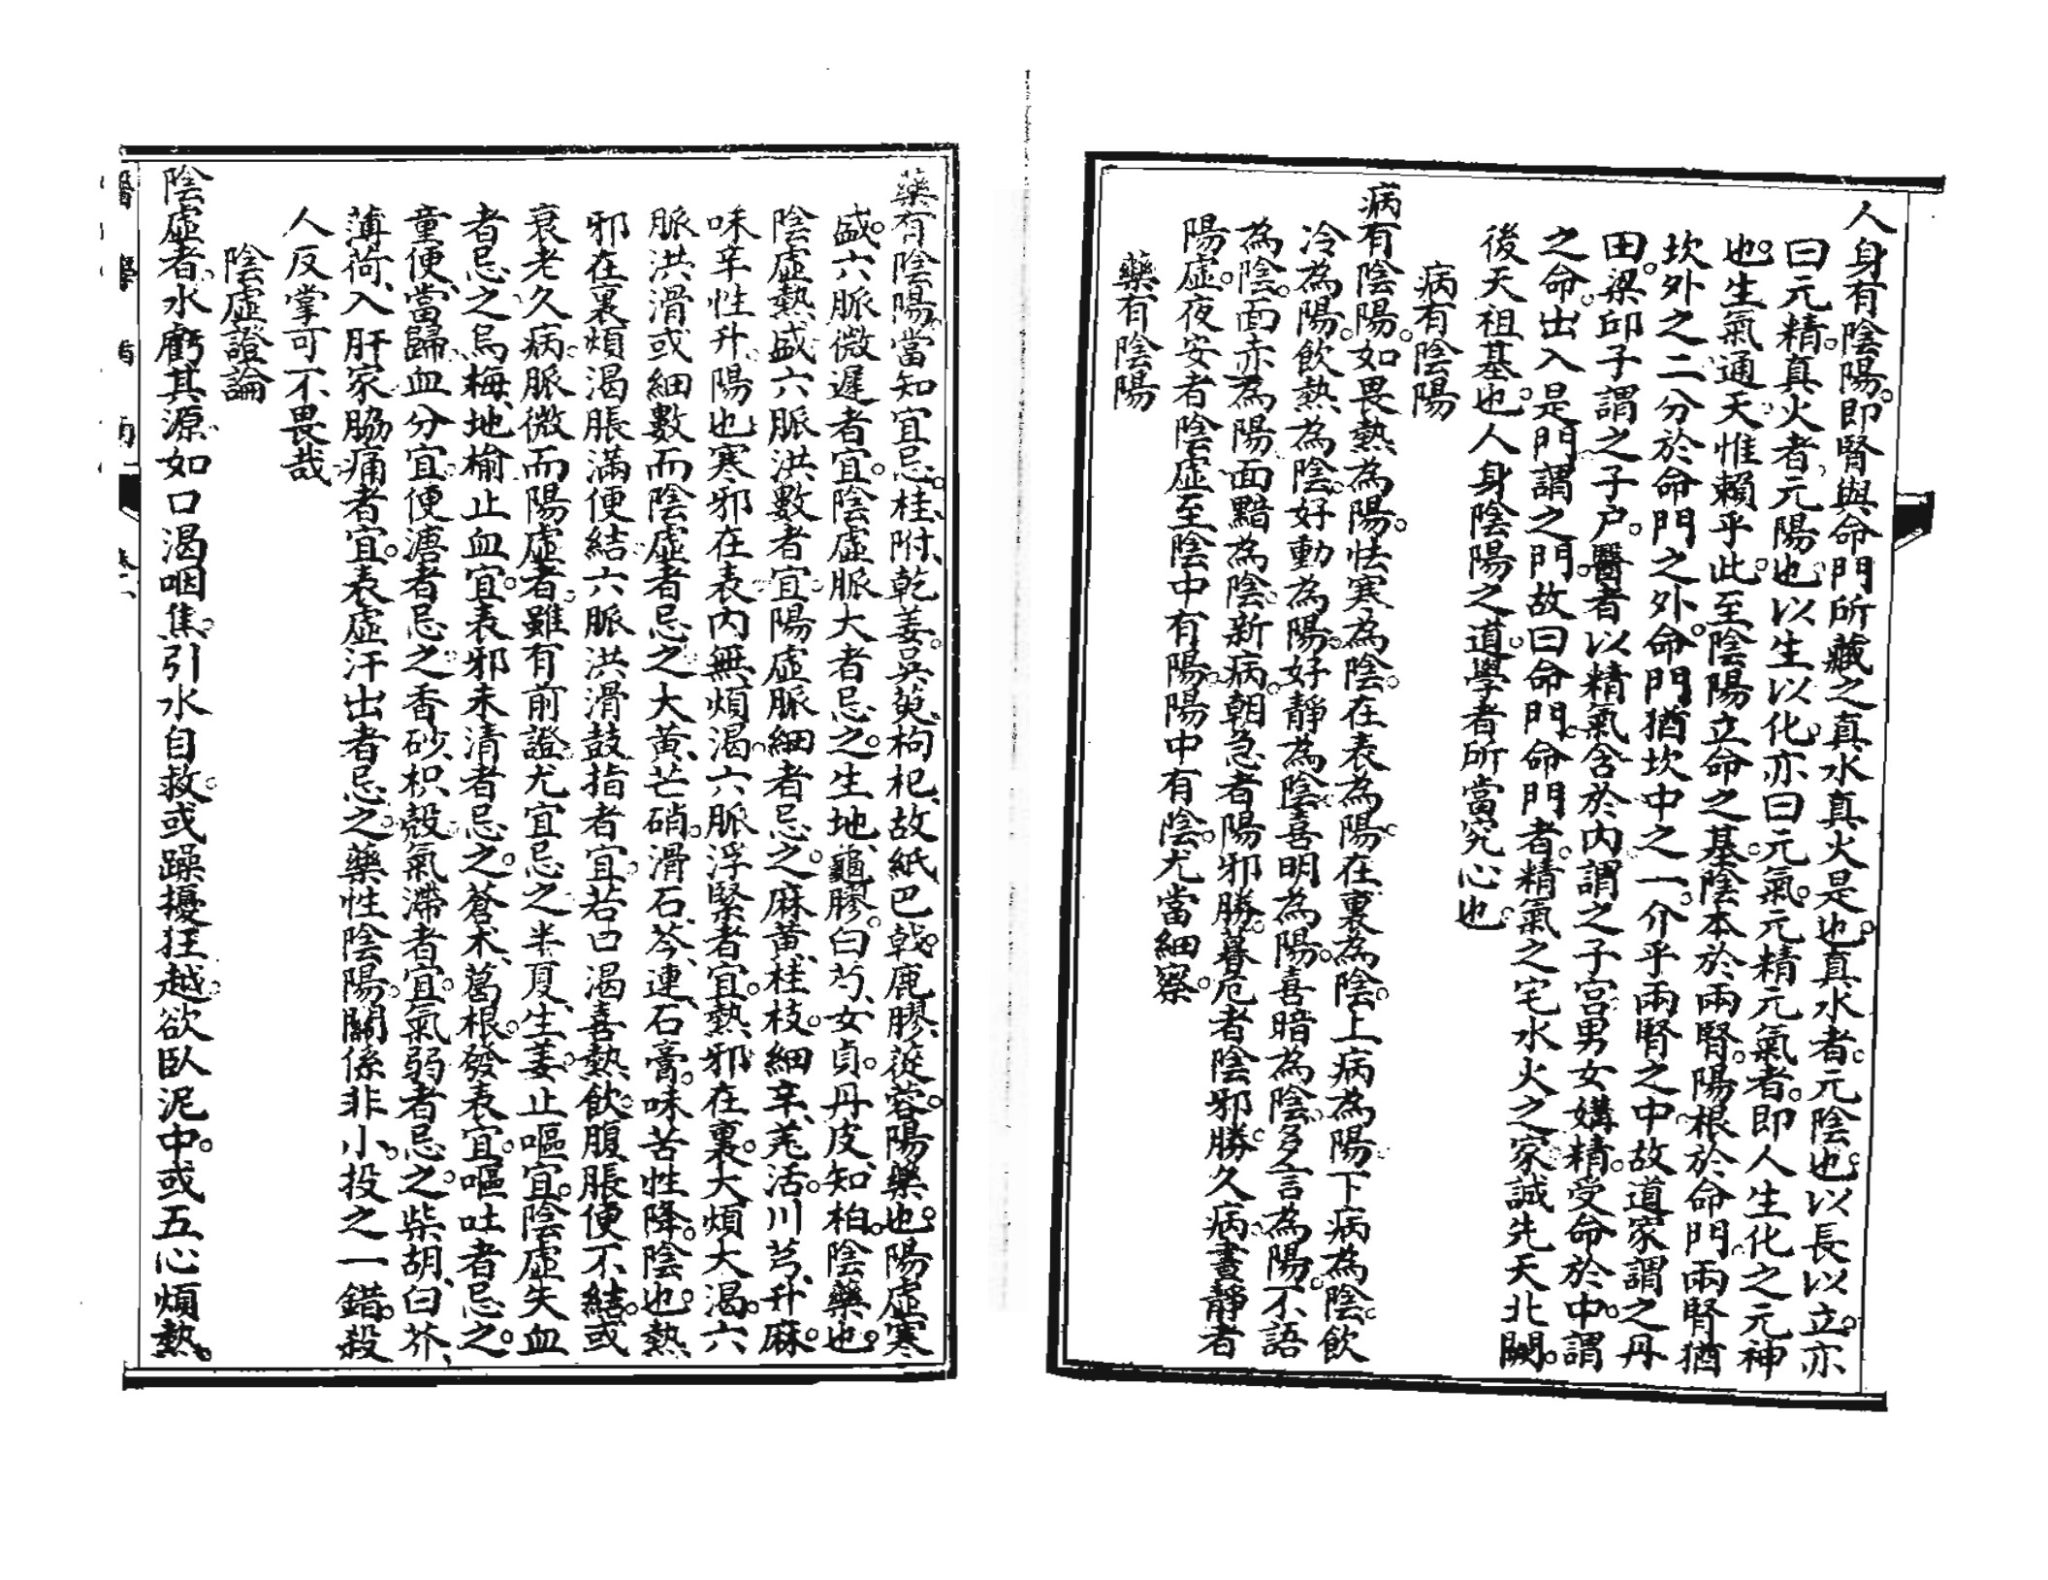 人身有陰陽。即腎與命門所藏之真水真火是也。真水者。元陰也。以長以立。亦
曰元精。真火者。元陽也。以生以化。亦曰元氣。元精元氣者。即人生化之元神
也。生氣通天。惟賴乎此。至陰陽立命之基。陰本於兩腎。陽根於命門。兩腎猶
坎外之二分於命門之外。命門猶坎中之一。介乎兩腎之中。故道家謂之丹
田。梁邱子謂之子户。醫者以精氣含於內。謂之子宫。男女媾精。受命於中。謂
之命。出入是門。謂之門。故曰命門。命門者。精氣之宅。水火之家。誠先天北闕。
後天祖基也。人身陰陽之道。學者所當究心也。
病有陰陽
病有陰陽。如畏熱為陽。怯寒為陰。在表為陽。在裏為陰。上病為陽。下病為陰。飲
冷為陽。飲熱為陰。好動為陽。好靜為陰。喜明為陽。喜暗為陰。多言為陽。不語
為陰。面赤為陽。面黯為陰。新病。朝急者陽邪勝。暮危者陰邪勝。久病。晝靜者
陽虛。夜安者陰虛。至陰中有陽。陽中有陰。尤當細察。
藥有陰陽
藥有陰陽。當知宜忌。桂、附、乾姜。吳萸、枸杞、故紙。巴戟。鹿膠。蓯蓉。陽藥也。陽虛寒
盛。六脈微遲者宜。陰虛脈大者忌之。生地、龜膠。白芍、女貞。丹皮、知柏。陰藥也。
陰虛熱盛。六脈洪數者宜。陽虛脈細者忌之。麻黄、桂枝。細辛、羌活。川芎、升麻。
味辛性升。陽也。寒邪在表。內無煩渴。六脈浮緊者宜。熱邪在裏。大煩大渴。六
脈洪滑或細數而陰虛者忌之。大黄、芒硝。滑石、芩、連、石膏。味苦性降。陰也。熱
邪在裏。煩渴脹滿便結。六脈洪滑鼓指者宜。若口渴喜熱飲。腹脹便不結。或
衰老久病。脈微而陽虛者。雖有前證。尤宜忌之。半夏、生姜。止嘔宜。陰虛失血
者忌之。烏梅、地榆止血宜。表邪未清者忌之。蒼术、葛根。發表宜。嘔吐者忌之。
童便、當歸。血分宜。便溏者忌之。香砂、枳殼。氣滯者宜。氣弱者忌之。柴胡、白芥、
薄荷、入肝家。脇痛者宜。表虛汗出者忌之。藥性陰陽。關係非小。投之一錯。殺
人反掌。可不畏哉。
陰虛證論
陰虛者、水虧其源。如口渴咽焦。引水自救。或躁擾狂越。欲臥泥中。或五心煩熱。